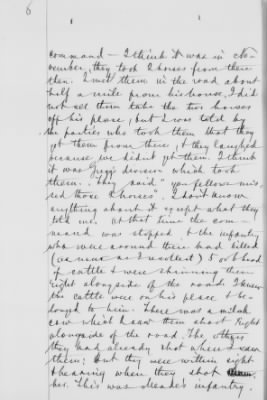 6
command - I think it was in No-
vember, they took 2 horses from there
then. I met them in the road about
half a mile from his house, I did
not see them take the two horses
off his place, but I was told by
the parties who took them that they
got them from there, & they laughed
because we didn't get them. I think
it was Gregg's division which took
them. They said "you fellows mis-
sed those 2 horses". I don't know
anything about it except what they
told me. At that time the com-
mand was stopped & the infantry
who were around there had killed
(as near as I recollect) 5 or 6 head
of cattle & were skinning them
right alongside of the road. I know
the cattle were on his place & be-
longed to him. There was a milch
cow which I saw them shoot right
alongside of the road. The others
they had already shot when I saw
them; but they were within sight
& hearing when they shot
her. This was Meade's infantry.